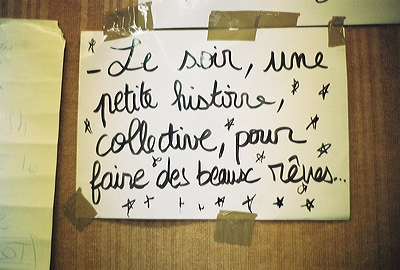 - Le soir, une
petite histoire,
collective, pour
faire des beaux rêves...